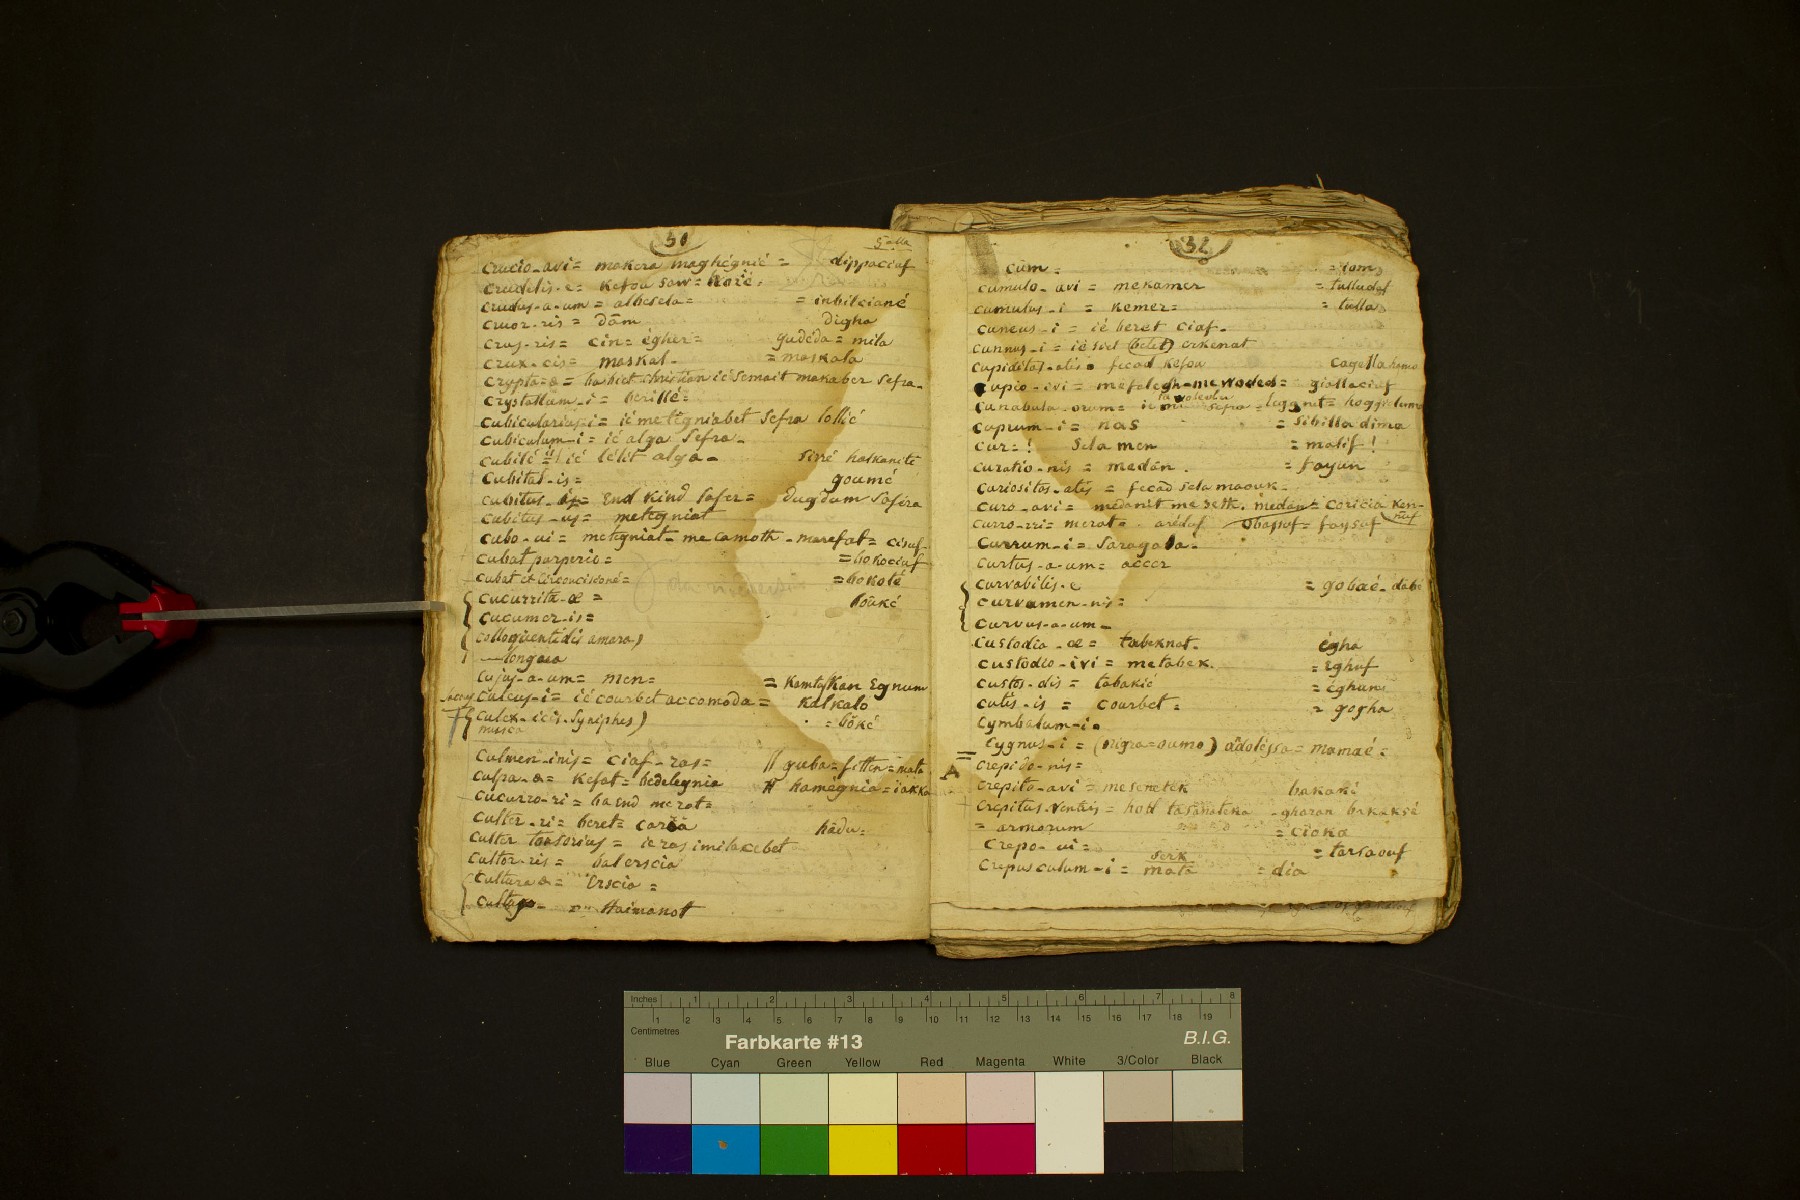 30
Galla
Crucio-avi = makera maghégnié = dippaciaf
Crudelis-e = Kefou saw =
Crudus-a-um = albesela = = inbilciané
Cruor-ris = Dām Digha
Crus-ris = cin = égher = gudéda = mila
Crux-cis = maskal- = maskala
Crypta-æ = babiet christian ié Semait makaber sefra-
Crystallum-i = berillé =
Cubicularius-i = ié metégniabet Sefra lollié
Cubiculum-i = ié alga Sefra-
Cubilé = ié lélit alga- Sirré halkanité
Cubital-is = goumé
Cubitus-i = End Kind Safer = dugdum Safira
Cubitus-us = metegniat
Cubo-ui = metégniat = me camoth - marefat = cisuf
Cubat parperio = = bokociaf
Cubat et circoncisioné = = bokolé
Cucurrita-æ = boûké
Cucumer-is =
Colloquentidis amara)
— longaea
Cujus-a-um = men = = Kamta Kan Egnum
Calcus-i = ié courbet accomoda = Kalkalo
Culex-icis-Syniphes) = bôké
musca
Culmen-inis = ciaf-ras = // guba = fitten = mata
Culpa-æ = Kefat = bedelegnia # hamégnia = iakka
Cucurro-ri = ba End merot =
Culter-ri = beret = hādu =
Culter tonsorius = ié ras imilacebet
Cultor-ris = balerscia
Cultura-æ = Erscia =
Haimanot
32
Cum = = tom
Cumulo-avi = mekamer = tulludaf
Cumulus-i = Kemer = = tulla
Cuneus-i = ié beret ciaf-
Cunnus-i = ié siet (belet) erkenat
Cupiditas-atis = fecad Kefou Cagella homo
Cupio-ivi = mefalegh-mewoded = giallaciaf
Cunabula-orum = Sefra = Leggnet = hoggielum
Cuprum-i = nas = Sibilla dima
Cur = ! Sela men = malif !
Curatio-nis = medān. = fayun
Curiositas-atis = fecad sela maouk-
Curo-avi = médanit mesetk. medān = Coricia Ken-
nuf
Curro-rri = merot = arédaf Obassuf = faysaf
Currum-i = Saragala-
Curtus-a-um = accer
Curvabilis-e = gobaé- dabé
Curvamen-nis =
Curvus-a-um-
Custodia-æ = tabeknat- égha
Custodio-ivi = metabek. = Eghuf
Custos-dis = tabakié = éghun
Cutis-is = courbet = = gogha
Cymbalum-i =
Cygnus-i = (nigra = sumo) adolessa = mamaé =
A
Crepido-nis =
Crepito-avi = mesenetek bakaké
Crepitus ventris = hod tasanateka - gharan bakaksé
= armorum = cioka
Crepo-ui = = tarsaouf
serk
Crepusculum-i = mata = dia
Inches 1 2 3 4 5 6 7 8
1 2 3 4 5 6 7 8 9 10 11 12 13 14 15 16 17 18 19
Centimetres
Farbkarte #13 B.I.G.
Blue Cyan Green Yellow Red Magenta White 3/Color Black